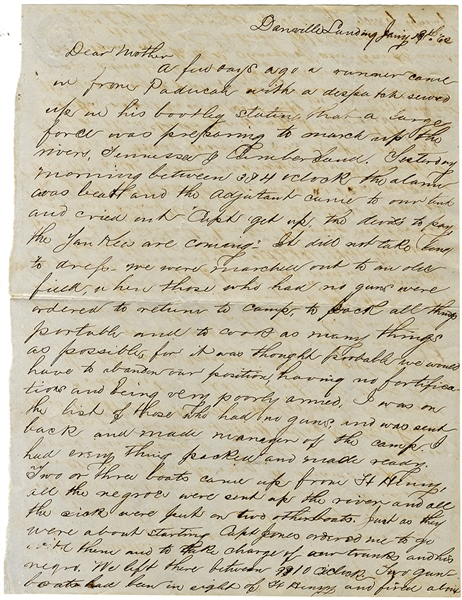 Danville Landing Jany 19th '62
Dear Mother
A few days ago a runner came
in from Paducah with a despatch sewed
up in his bootleg statin that a large
force was preparing to march up the
rivers, Tennessee & Cumberland. Yesterday
morning between 3 & 4 oclock the alarm
was beat and the Adjutant came to our tent
and cried out Capt get up, the devils to pay
the Yankees are coming! It did not take long
to dress. We were marched out to an old
field, when those who had no guns were
ordered to return to camp, to pack all things
portable and to cook as many things
as possible, for it was thought probable we would
have to abandon our position, having no fortifica
tions and being very poorly armed. I was on
the list of those who had no guns, and was sent
back and made manager of the camp. I
had every thing packed and made ready.
Two or three boats came up from Ft Henry,
all the negroes were sent up the river and all
the sick were put on two other boats. Just as they
were about starting Capt Jones ordered me to go
with them and to take charge of our trunks and his
negro. We left there between 9 & 10 oclock. Two gun
boats had been in sight of Ft Henry and fired about